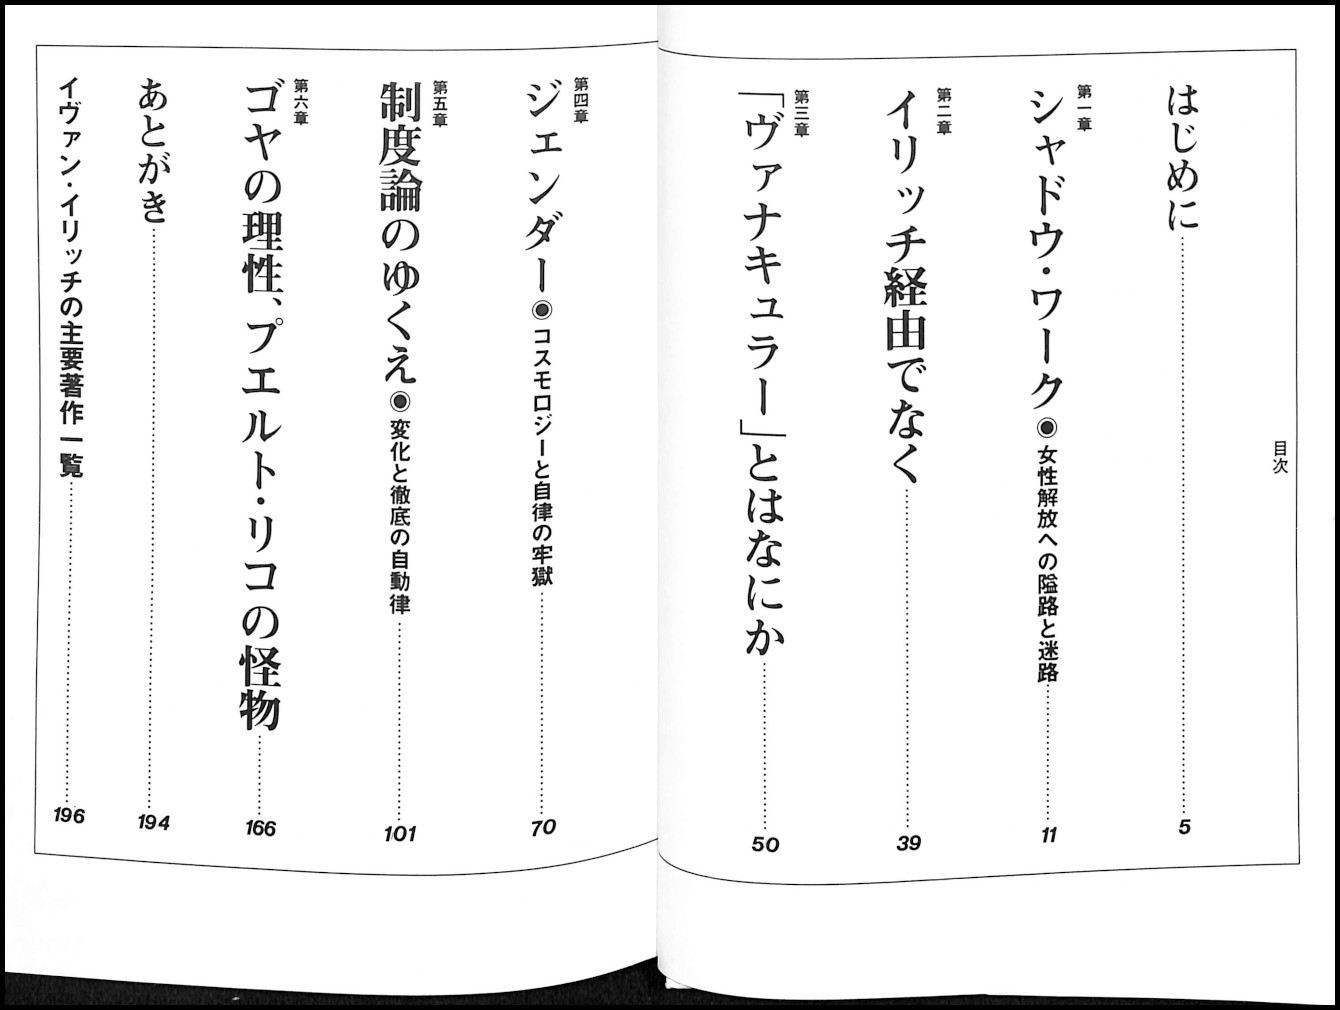 目次
はじめに……5
第一章
シャドウ・ワーク◉女性解放への隘路と迷路……11
第二章
イリッチ経由でなく……39
第三章
「ヴァナキュラー」とはなにか……50
第四章
ジェンダー◉コスモロジーと自律の牢獄……70
第五章
制度論のゆくえ◉変化と徹底の自動律……101
第六章
ゴヤの理性、プエルト・リコの怪物……166
あとがき……194
イヴァン・イリッチの主要著作一覧……196